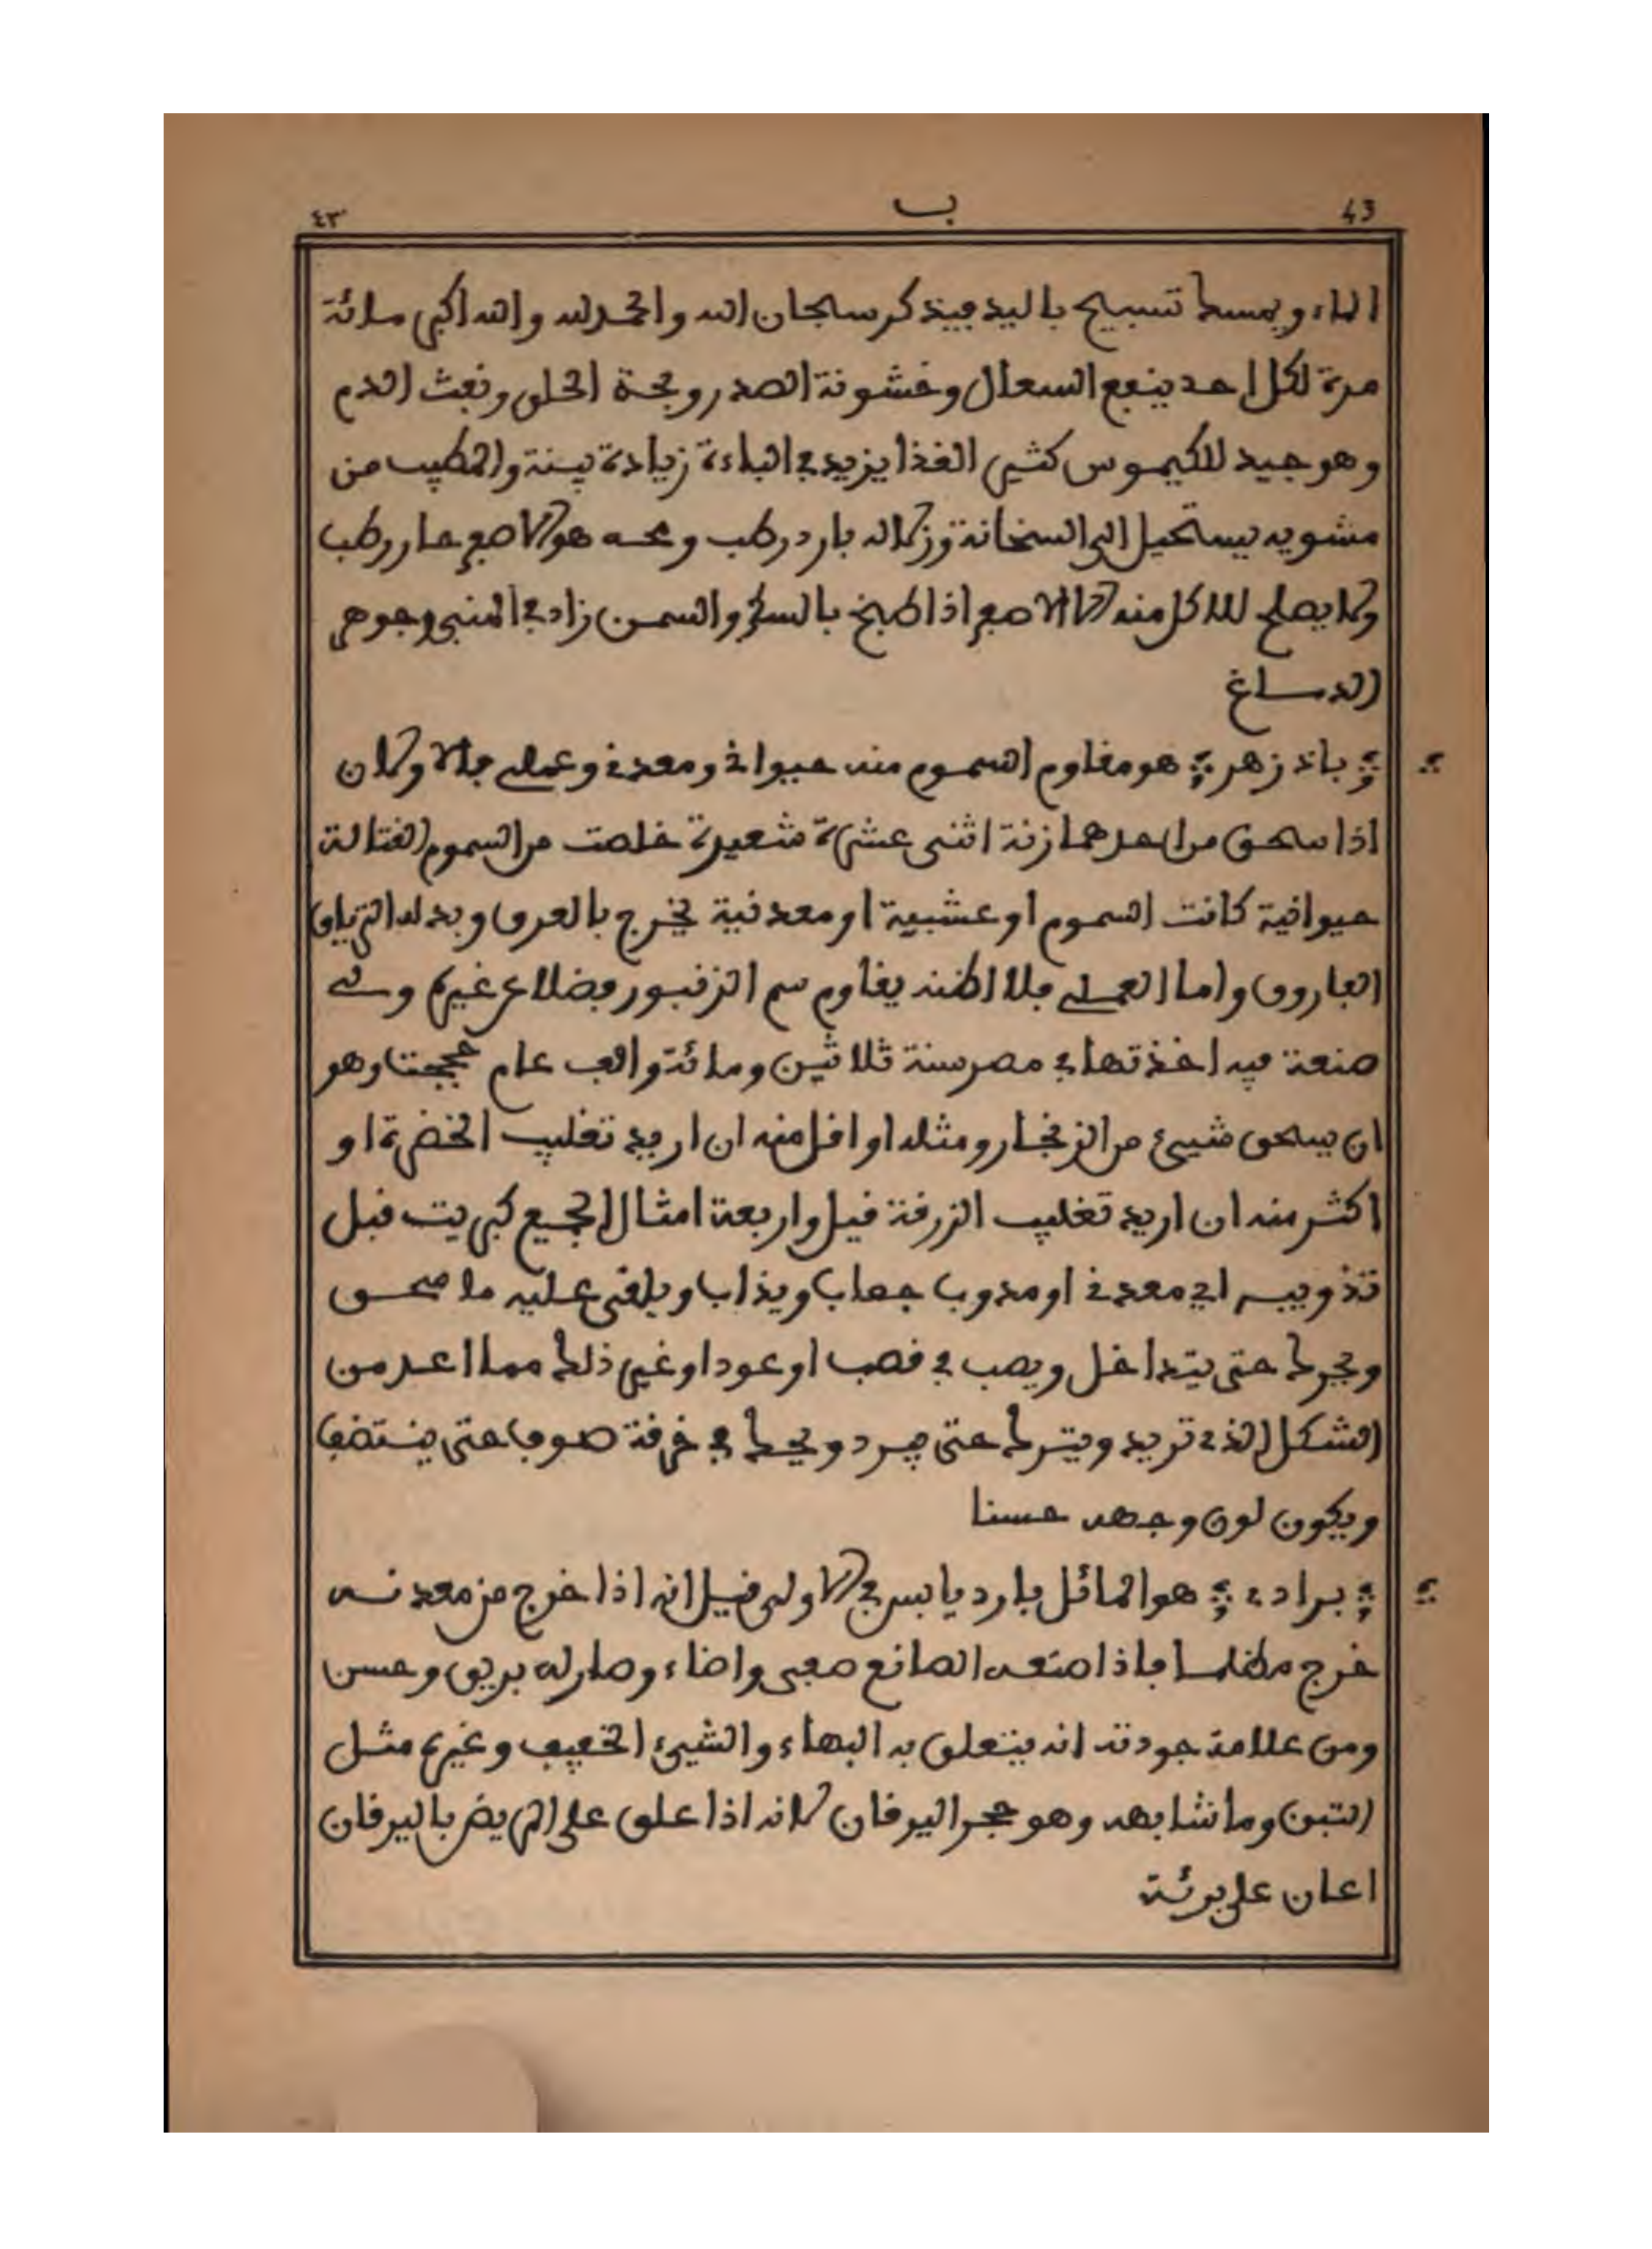 43 ب ٤٣
الماء ويمسك تسبيح باليد فيذكر سبحان الله والحمد لله والله اكبر مائة
مرة لكل احد ينفع السعال وخشونة الصدر وبحة الحلق ونفث الدم
وهو جيد للكيموس كثير الغذا يزيد في الباءة زيادة بينة والمطيب من
مشويه يستحيل الى السخانة وزلاله بارد رطب ومحه هو الاصفر حار رطب
ولا يصلح للاكل منه الا الاصفر اذا طبخ بالسكر والسمن زاد في المني وجوهر
الدماغ
؞ باذزهر ؞ هو مقاوم السموم منه حيواني ومعدني وعملي فالاولان
اذا سحق من احدهما زنة اثنى عشرة شعيرة خلصت من السموم القتالة
حيوانية كانت السموم او عشبية او معدنية يخرج بالعرق وبدله الترياق
الفاروق واما العملي فلا اظنه يقاوم سم الزنبور فضلا عن غيره ولي
صنعة فيه اخذتها في مصر سنة ثلاثين ومائة والف عام حججت وهو
ان يسحق شيئ من الزنجار ومثله او اقل منه ان اريد تغليب الخضرة او
اكثر منه ان اريد تغليب الزرقة فيل واربعة امثال الجميع كبريت قبل
تذويبه اي معدني او مذوب جعاب ويذاب ويلقى عليه ما صحق
ويحرك حتى يتداخل ويصب في قصب او عود او غير ذلك مما اعد من
الشكل الذي تريد ويترك حتى يبرد ويحك في خرقة صوف حتى ينتضف
ويكون لون وجهه حسنا
؞ برادي ؞ هو المائل بارد يابس في الاولى قيل انه اذا خرج من معدنه
خرج مظلما فاذا صنعه الصانع صفى واضاء وصار له بريق وحسن
ومن علامة جودته انه يتعلق به البهاء والشيئ الخفيف وغيره مثل
التبن وما شابهه وهو حجر اليرقان لانه اذا علق على المريض باليرقان
اعان على برئة